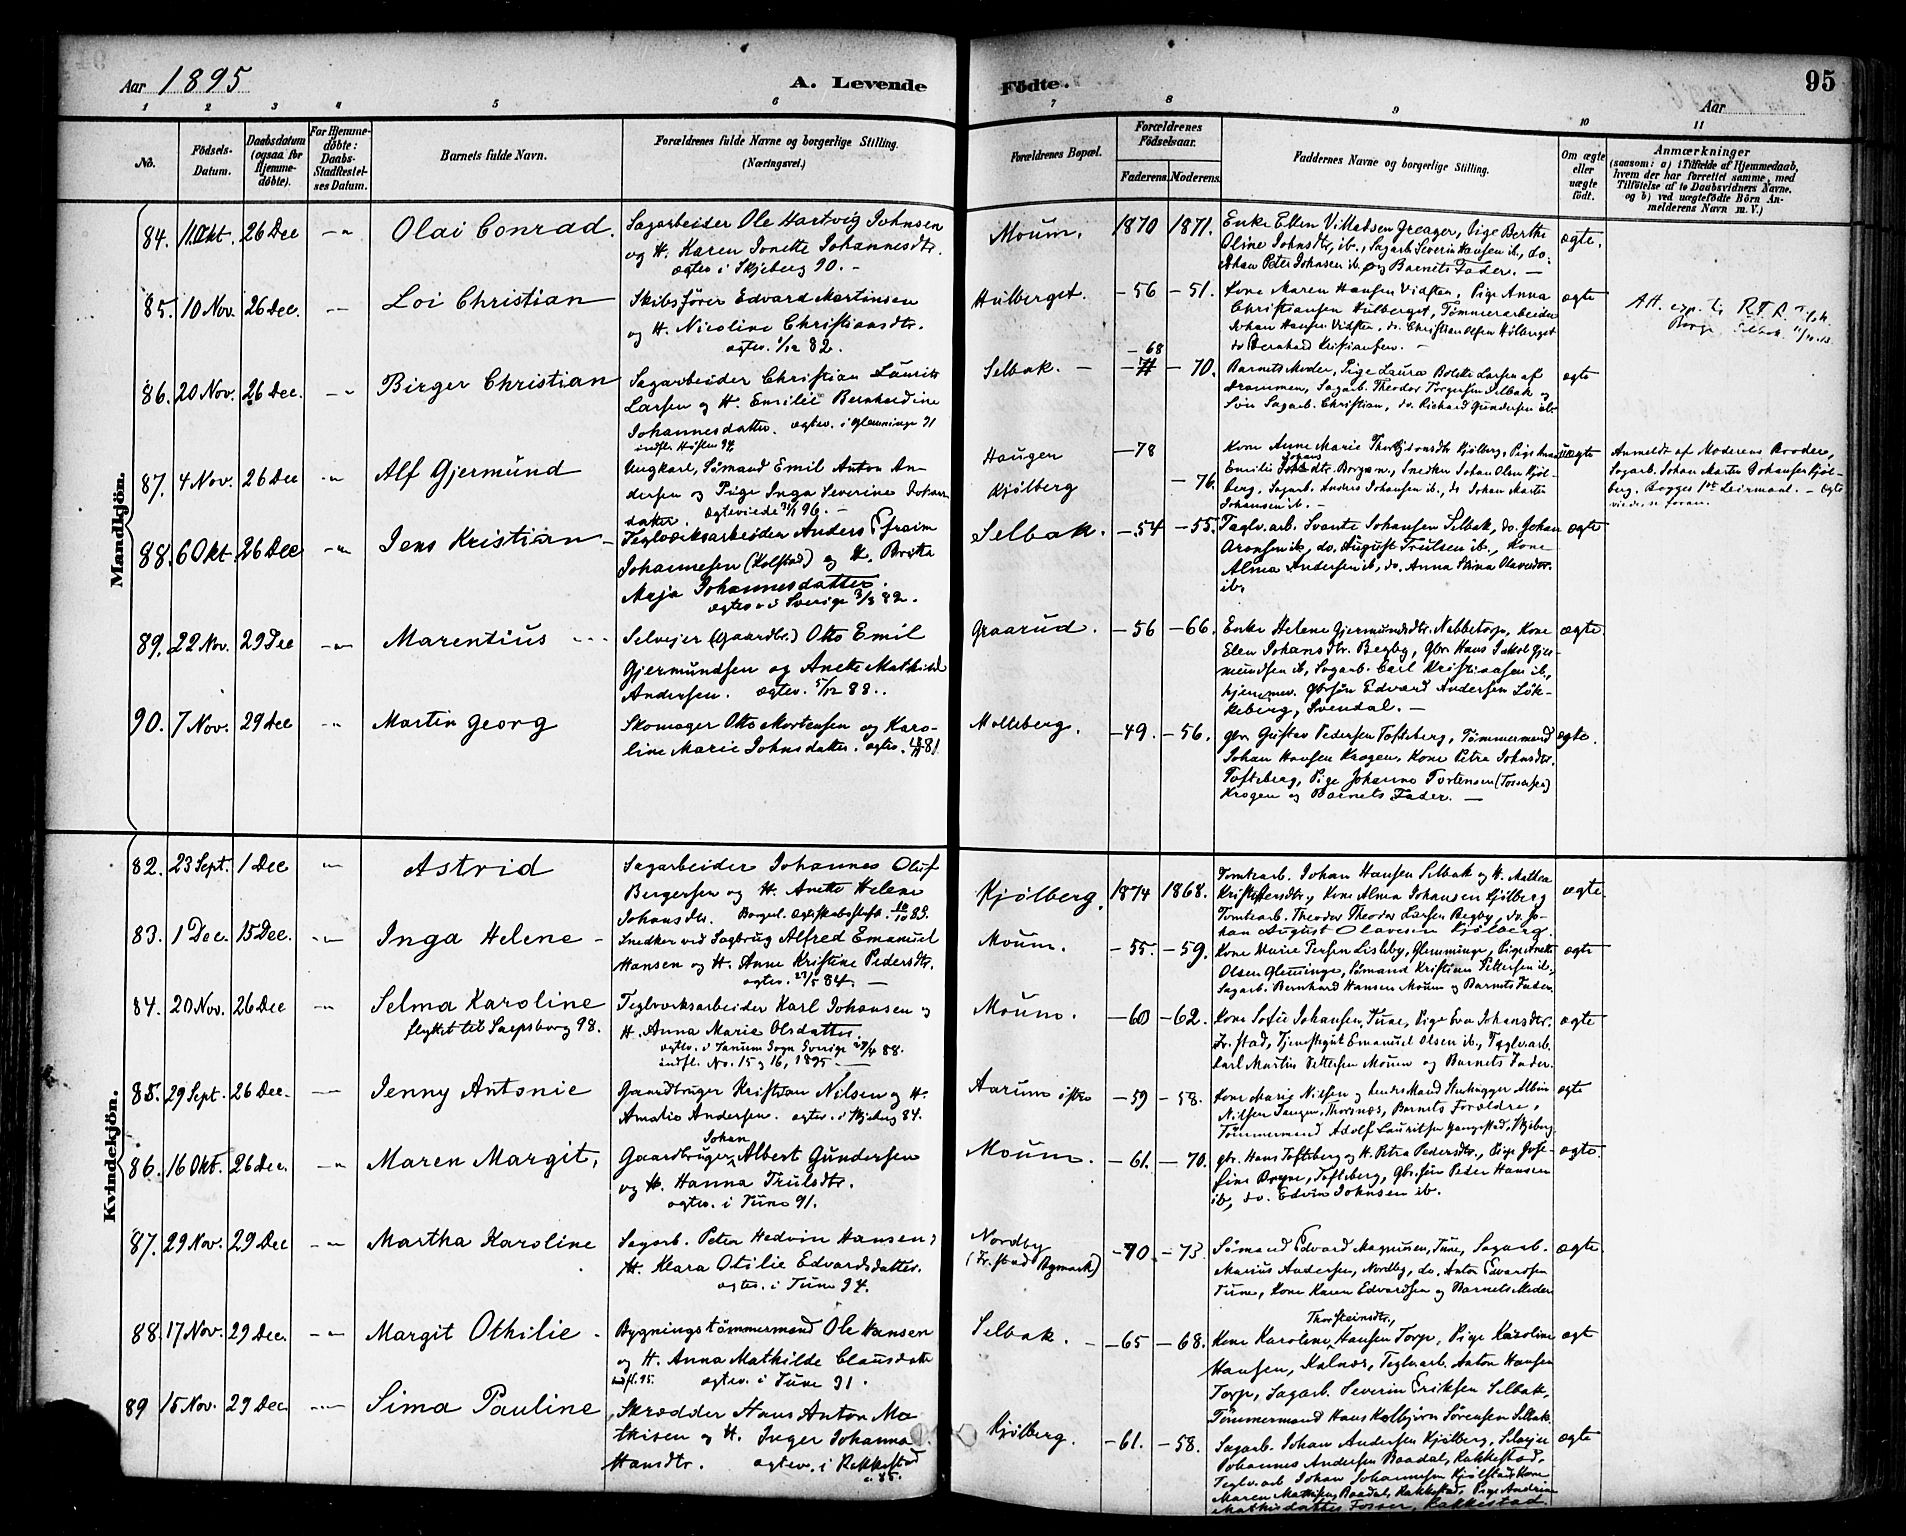 95
Aar 1895
A. Levende
Födte.
Aar
1 2 3 4 5 6 7 8 9 10 11
No.
Födsels-
Datum.
Daabsdatum
(ogsaa for
Hjemme-
döbte).
For Hjemme-
döbte:
Daabs-
Stadfæstel-
ses Datum.
Barnets fulde Navn.
Forældrenes fulde Navne og borgerlige Stilling.
(Næringsvei.)
Forældrenes Bopæl.
Forældrenes
Födselsaar.
Faderens. Moderens.
Faddernes Navne og borgerlige Stilling.
Om ægte
eller
uægte
födt.
Anmærkninger
(saasom: a) i Tilfælde af Hjemmedaab,
hvem der har forrettet samme, med
Tilföielse af to Daabsvidners Navne.
og b) ved uægtefödte Börn An-
melderens Navn m. V.)
Mandkjön.
84. 11 Okt. 26 Dec -"- Olai Conrad.
Sagarbeider Ole Hartvig Johnsen
og H. Karen Jonette Johannesdtr.
ægtev. i Skjeberg 90. -
Moum. 1870 1871.
Enke Ellen Villadsen Greager, Pige Berthe
Oline Johnsdtr, ib., Sagarb. Severin Hansen ib., do.
Johan Peter Johnsen ib. og Barnets Fader. -
ægte.
85. 10 Nov. 26 Dec. -"- Loi Christian
Skibsfører Edvard Martinsen
og H. Nicoline Christiansdtr.
ægtev. 1/12 82.
Hulberget. -56 -51.
Kone Maren Hansen Vidsten, Pige Anna
Christiansen Hulberget, Tömmerarbeider
Johan Hansen Vidsten, do. Christian Olsen Hulberget
do Bernhard Kristiansen. -
ægte
86. 20 Nov. 26 Dec. -"- Birger Christian
Sagarbeider Christian Laurits
Larsen og H. Emilie Bernhardine
Johannesdatter. ægtev. i Glemminge 91
indfl. Høsten 94
Selbak. - -68 -70.
Barnets Moder, Pige Laura Larsen af
Drammen, Sagarb. Theodor Torgersen Selbak og
Søn Sagarb. Christian, do. Richard Gundersen ib.
ægte
87. 4 Nov. 26 Dec -"- Alf Gjermund
Ungkarl, Sømand Emil Anton An-
dersen og Pige Inga Severine Johans
datter. Ægteviede 96. -
Haugen -78
Kjølberg -76.
Kone Anne Marie Kjølberg, Pige
Emilie Borgen, Snedker Johan Olsen Kjøl-
berg, Sagarb. Anders Johansen ib., do Johan Martin
Johansen ib. -
Uægte
Anmeldt af Moderens Broder,
Sagarb. Johan Martin Johansen Kjøl-
berg. Begges 1ste Leiermaal. - Ægte
viede, se foran.
88. 6 Okt. 26 Dec -"- Jens Kristian -
Teglværksarbeider Anders Efraim
Johannesen (Kolstad) og H. Britta
Maja Johannesdatter.
ægtev. i Sverige 3/3 82.
Selbak. -54 -55.
Teglv.arb. Svante Johansen Selbak, do. Johan
Aronsen ib, do. August Trulsen ib., Kone
Alma Andersen ib, do. Anna Stina Olavesdtr.
ib.
ægte
89. 22 Nov. 29 Dec -"- Marentius
Selveier (Gaardbr.) Otto Emil
Gjermundsen og Anette Mathilde
Andersen. ægtev. 5/12 88.
Graarud. -56 -66.
Enke Helene Gjermundsdtr. Nabbetorp, Kone
Elen Johansdtr. Begby, Gbr. Hans Jakob Gjer-
mundsen ib, Sagarb. Carl Kristiansen ib.,
hjemmev. Gbrsøn Edvard Andersen Løk-
keberg, Svendal. -
ægte
90. 7 Nov. 29 Dec -"- Martin Georg
Skomager Otto Mortensen og Karo-
line Marie Johnsdatter. ægtev. 81
Molleberg. -49. -56.
Gbr. Gustav Pedersen Tofteberg, Tömmermand
Johan Hansen Krogen, Kone Petra Johnsdtr.
Tofteberg, Pige Johanne Tortensen
Krogen og Barnets Fader. -
ægte.
Kvindekjön.
82. 23 Sept. 1 Dec -"- Astrid
Sagarbeider Johannes Oluf
Bergersen og H. Anette Helene
Johansdtr. Borgerl. Ægteskabsstift.
Kjølberg. 1874 1868.
Tomtearb. Johan Hansen Selbak og H. Mathea
Kone Alma Johansen Kjølberg
Tomtearb. Theodor Larsen Begby, do. Jo-
han August Olavesen Kjølberg.
ægte
83. 1 Dec. 15 Dec. -"- Inga Helene -
Snedker ved Sagbrug Alfred Emanuel
Hansen og H. Anne Kristine Pedersdtr.
ægtev. 84. -
Moum. -55. -59.
Kone Marie Persen Lisleby, Glemminge, Pige Anette
Olsen Glemminge, Sømand Kristian Pettersen ib.,
Sagarb. Bernhard Hansen Moum og Barnets Fader.
ægte
84. 20 Nov. 26 Dec -"- Selma Karoline
flyttet til Sarpsborg 98.
Teglværksarbeider Karl Johansen og
H. Anna Marie Olsdatter.
ægtev. i Tanum Sogn Sverige 88.
indfl. No. 15 og 16, 1895. -
Moum. -60 -62.
Kone Sofie Johansen, Tune, Pige Eva Johansdtr.
Fr.stad, Tjenestegut Emanuel Olsen ib., Teglv.arb.
Carl Martin Pettersen Moum og Barnets Fader.
ægte
85. 29 Sept. 26 Dec. -"- Jenny Antonie
Gaardbruger Kristian Nilsen og H.
Amalie Andersen. ægtev. i Skjeberg 84.
Aarum østre -59 -58.
Kone Marie Nilsen og hendes Mand Stenhugger Albin
Nilsen Tangen, Thorsnæs, Barnets Forældre,
Tömmermand Adolf Lauritsen Skjeberg.
ægte
86. 16 Okt. 26 Dec. -"- Maren Margit.
Gaardbruger Johan Albert Gundersen
og H. Hanna Trulsdtr.
ægtev. i Tune 91.
Moum. -61. -70.
Gbr. Hans Tofteberg og H. Petra Pedersdtr., Pige Jose-
fine Tofteberg, Gbr.søn Peder Hansen
ib, do. Edvin Johnsen ib.
ægte.
87. 29 Nov. 29 Dec -"- Martha Karoline
Sagarb. Peter Hedvin Hansen,
H. Klara Otilie Edvardsdatter.
ægtev. i Tune 94.
Nordby
(Fr.stad Bymark) -70. -73
Sømand Edvard Magnusen, Tune, Sagarb.
Marius Andersen, Nordby, do. Anton Edvardsen
Tune, Kone Karen Edvardsen og Barnets Moder
ægte
88. 17 Nov. 29 Dec. -"- Margit Othilie -
Bygningstömmermand Ole Hansen
og H. Anna Mathilde Clausdatter
indfl. 95. ægtev. i Tune 91.
Selbak. - -65 -68.
Thorsteinsdtr.,
Kone Karoline Hansen Torp, Pige Karoline
Hansen, Kalnæs, Teglv.arb. Anton Hansen
Torp, Sagarb. Severin Eriksen Selbak,
Tömmermand Hans Kolbjørn Sørensen Selbak.
ægte
89 15 Nov. 29 Dec. -"- Sima Pauline
Skrædder Hans Anton Ma-
thisen og H. Inger Johanna
Hansdtr. ægtev. i Rakkestad
85.
Kjølberg. -61. -58.
Sagarb. Johan Andersen Kjølberg, Selveier
Johannes Andersen Baadal, Rakkestad,
Teglv.arb. Johan Johannesen Kjølstad, Kone
Maren Mathisen, Baadal, Rakkestad, Pige Andrine
Mathisdatter Fosser, Rakkestad.
ægte